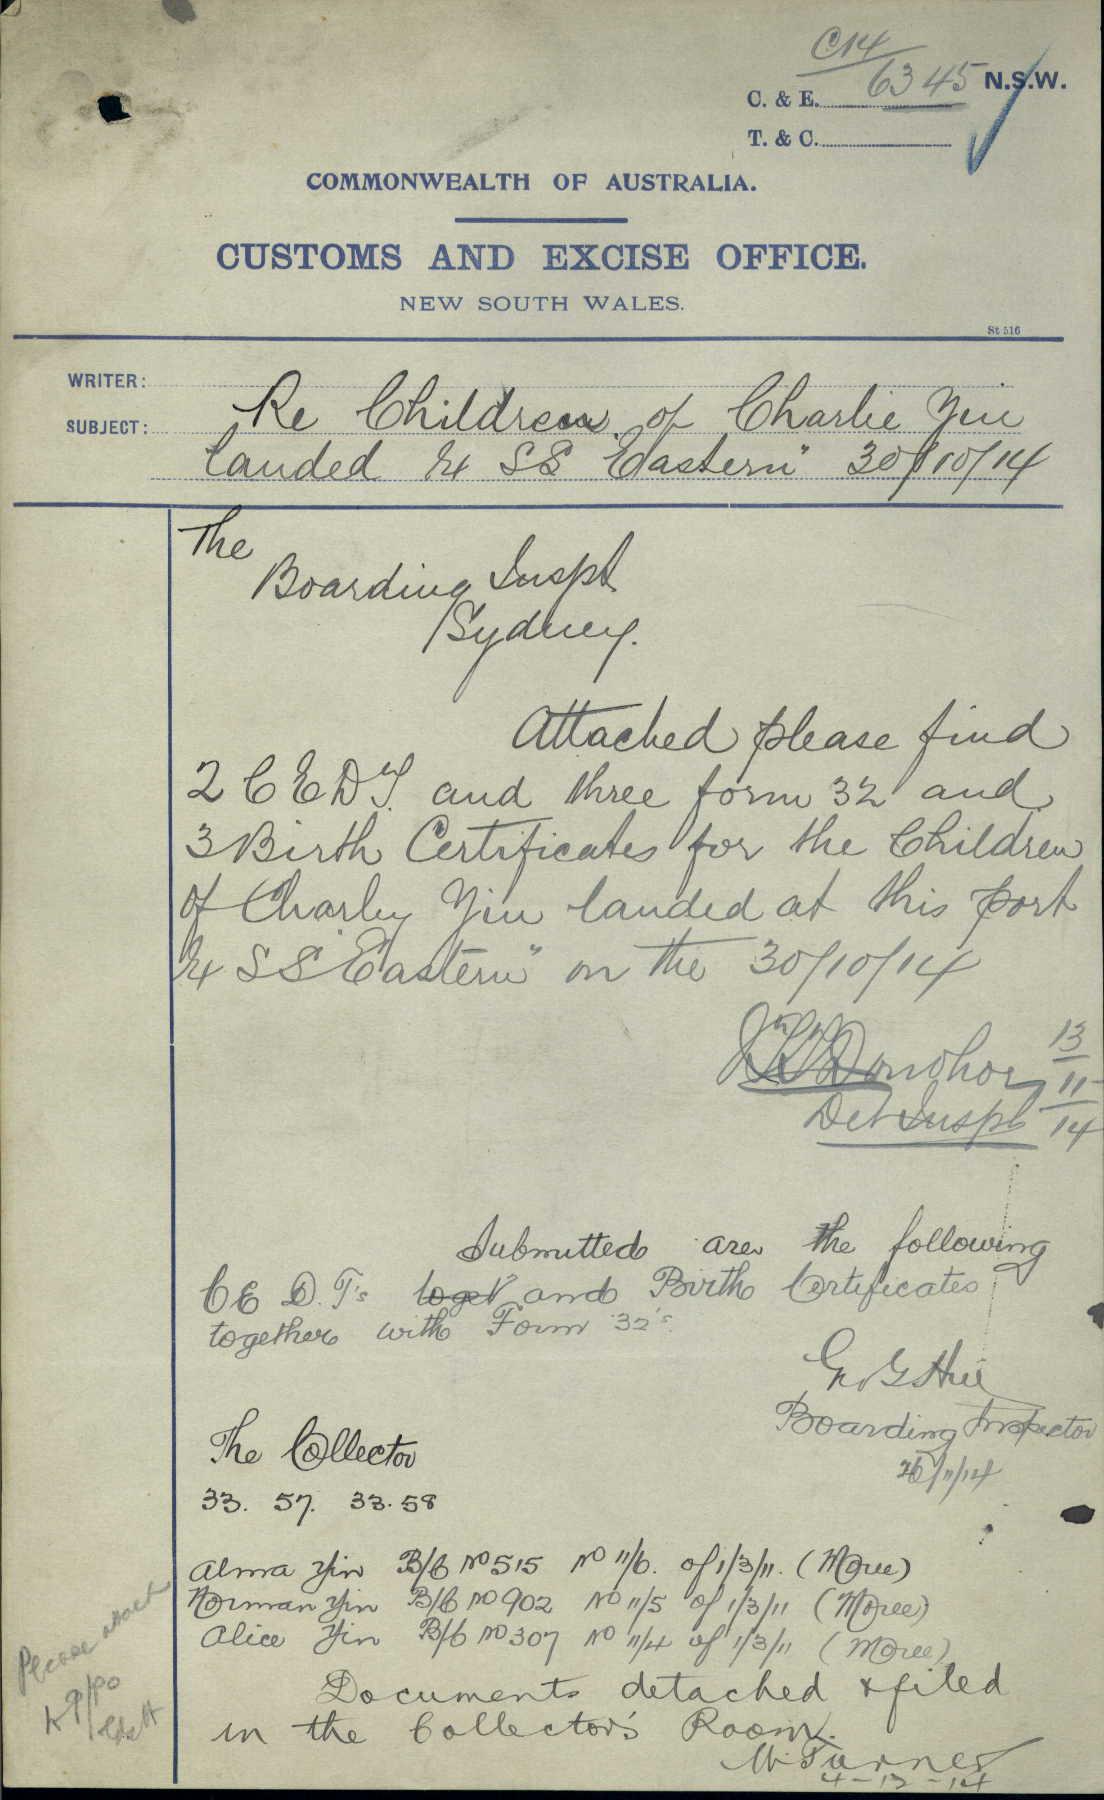 C14
6345
C. & E. N.S.W.
T. & C.
COMMONWEALTH OF AUSTRALIA.
CUSTOMS AND EXCISE OFFICE.
NEW SOUTH WALES.
St 516
WRITER:
SUBJECT: Re Children of Charlie Yin
landed ex SS Eastern" 30/10/14
The
Boarding Inspt
Sydney.
Attached please find
2 C E D T. and three form 32 and
3 Birth Certificates for the Children
of Charley Yin landed at this port
ex SS Eastern" on the 30/10/14
Donohoe 13/11/14
Det Inspt
Submitted are the following
C E D. T's toget and Birth Certificates
together with Form 32's.
Boarding Inspector
26/11/14
The Collector
33. 57. 33. 58
Alma Yin B/C No 515 No 11/6. of 1/3/11. (Moree)
Norman Yin B/C No 902 No 11/5 of 1/3/11 (Moree)
Alice Yin B/C No 307 No 11/4 of 1/3/11 (Moree)
Documents detached & filed
in the Collector's Room.
W. Turner
4-12-14
Please attach